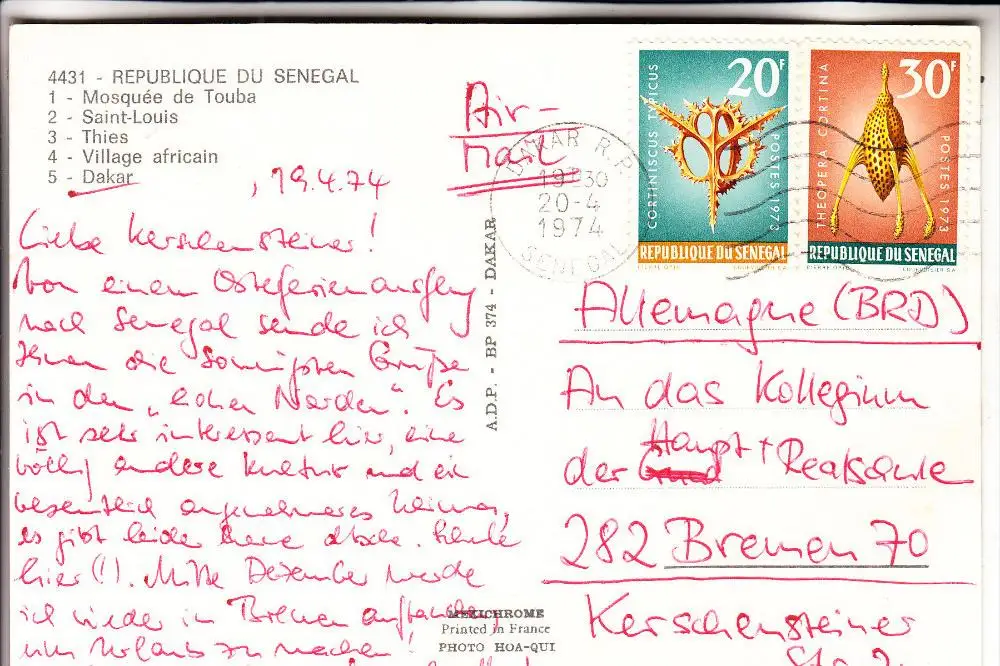 4431 - REPUBLIQUE DU SENEGAL
1 - Mosquée de Touba
2 - Saint-Louis
3 - Thies
4 - Village africain
5 - Dakar
, 19.4.74
Air-
mail
Liebe Kerschensteiner!
Von einem Osterferienausflug
nach Senegal sende ich
Ihnen die sonnigsten Grüße
in den „hohen Norden". Es
ist sehr interessant hier, eine
völlig andere Kultur und ein
wesentlich angenehmeres Klima,
es gibt leider keine dtsche. Schule
hier (!). Mitte Dezember werde
ich wieder in Bremen auftauchen,
um Urlaub zu machen!
A.D.P. - BP 374 - DAKAR
MEXICHROME
Printed in France
PHOTO HOA-QUI
DAKAR R.P.
19H30
20-4
1974
SENEGAL
20F
CORTINISCUS TYPICUS
POSTES 1973
REPUBLIQUE DU SENEGAL
30F
THEOPERA CORTINA
POSTES 1973
REPUBLIQUE DU SENEGAL
Allemagne (BRD)
An das Kollegium
der Haupt + Realschule
282 Bremen 70
Kerschensteiner
Str. 2